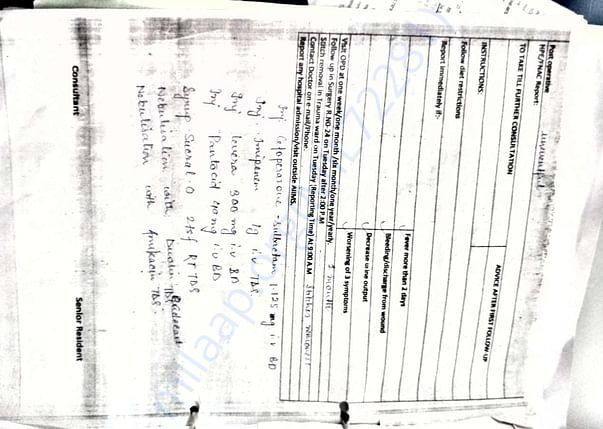 Post operative
HPE/FNAC Report: Uneventful
TO TAKE TILL FURTHER CONSULTATION
INSTRUCTIONS: ADVICE AFTER FIRST FOLLOW UP
Follow diet restrictions
Report immediately if:-
Fever more than 2 days
Bleeding/discharge from wound
Decrease urine output
Worsening of 3 symptoms
Visit OPD at one week/one month/six month/one year/yearly. 1 month
Follow up in Surgery R.NO-24 on Tuesday after 2:00 P.M
Stitch removal in Trauma ward on Tuesday (Reporting Time) At 9:00 A.M Stitches removed
Contact Doctor on e-mail/Phone.
Report any hospital admission/visit outside AIIMS.
Inj Cefoperazone - Sulbactam 1.125 mg iv BD
Inj. Imipenem 1g iv TDS
Inj levera 300 mg iv BD
Inj Pantocid 40mg iv BD
Syrup Sucral-O 2tsf RT TDS
Nebulisation with Duolin, Budecort TDS
Nebulisation with Amikacin TDS.
Consultant Senior Resident
milaap.org